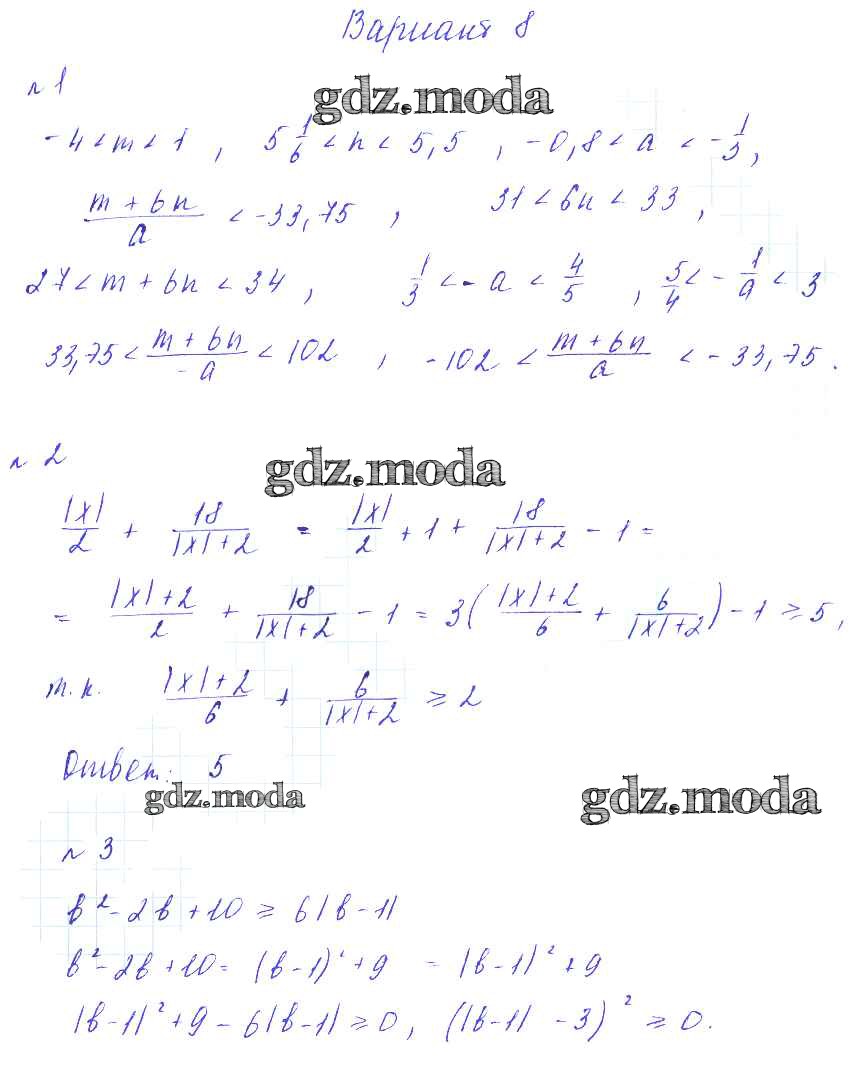 Вариант 8
№ 1
gdz.moda
-4 < m < 1 , 5 1/6 < n < 5,5 , -0,8 < a < -1/3,
(m + 6n)/a < -33,75 , 31 < 6n < 33 ,
27 < m + 6n < 34 , 1/3 < -a < 4/5 , 5/4 < -1/a < 3
33,75 < (m + 6n)/(-a) < 102 , -102 < (m + 6n)/a < -33,75 .
№ 2
gdz.moda
|x|/2 + 18/(|x|+2) = |x|/2 + 1 + 18/(|x|+2) - 1 =
= (|x|+2)/2 + 18/(|x|+2) - 1 = 3((|x|+2)/6 + 6/(|x|+2)) - 1 ≥ 5 ,
т.к. (|x|+2)/6 + 6/(|x|+2) ≥ 2
Ответ: 5
gdz.moda
gdz.moda
№ 3
b² - 2b + 10 ≥ 6|b - 1|
b² - 2b + 10 = (b - 1)² + 9 = |b - 1|² + 9
|b - 1|² + 9 - 6|b - 1| ≥ 0 , (|b - 1| - 3)² ≥ 0.